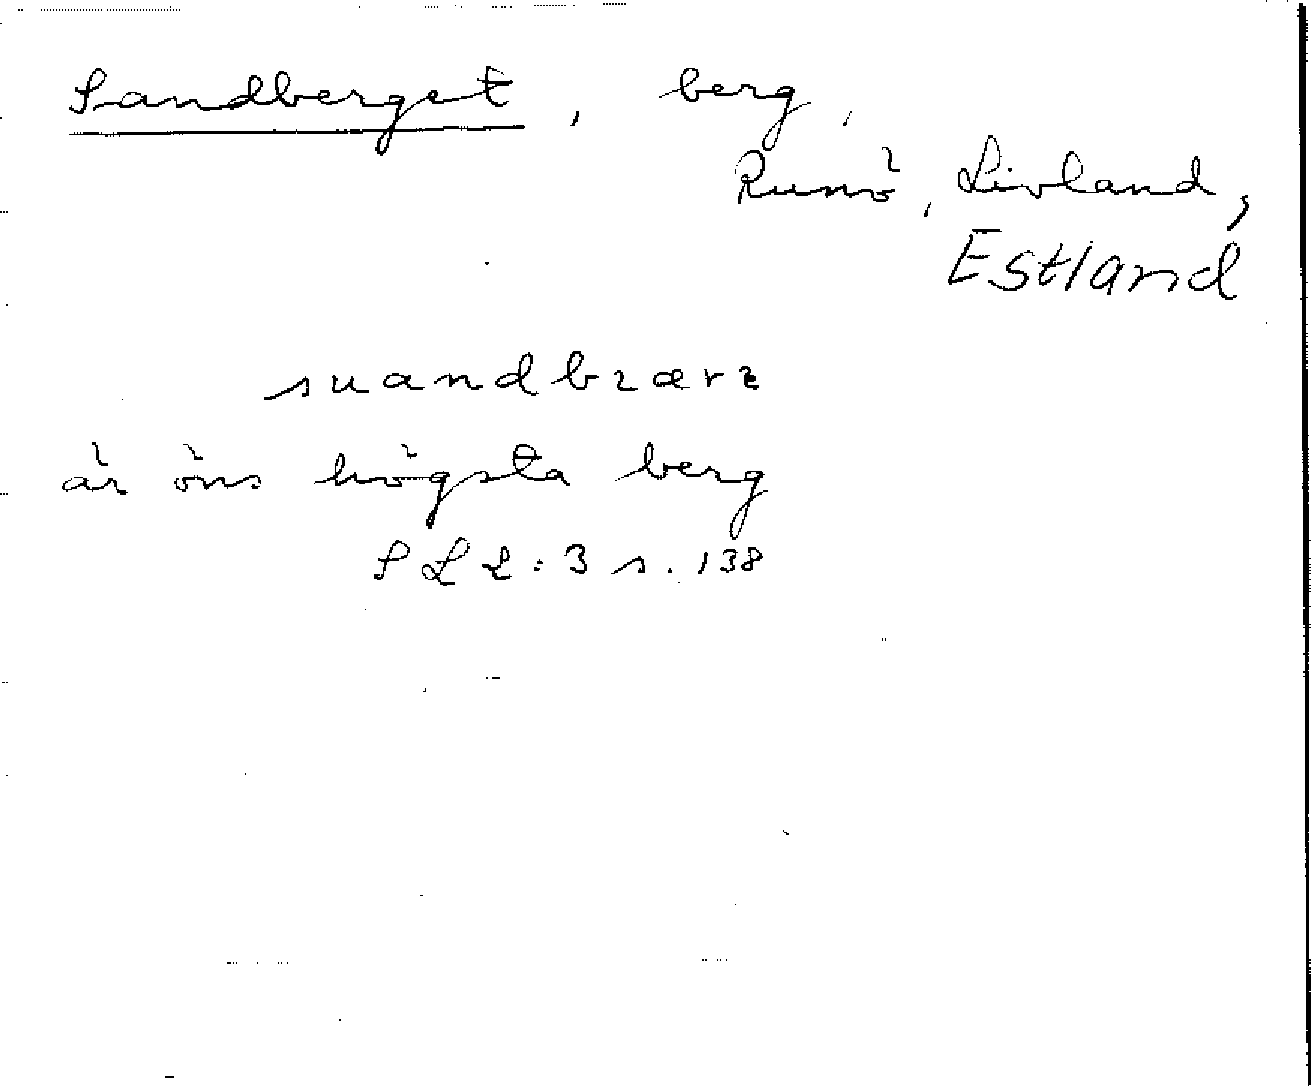 Sandberget, berg,
Runö, Livland,
Estland
suandbrærɛ
är öns högsta berg
SLL:3 s. 138